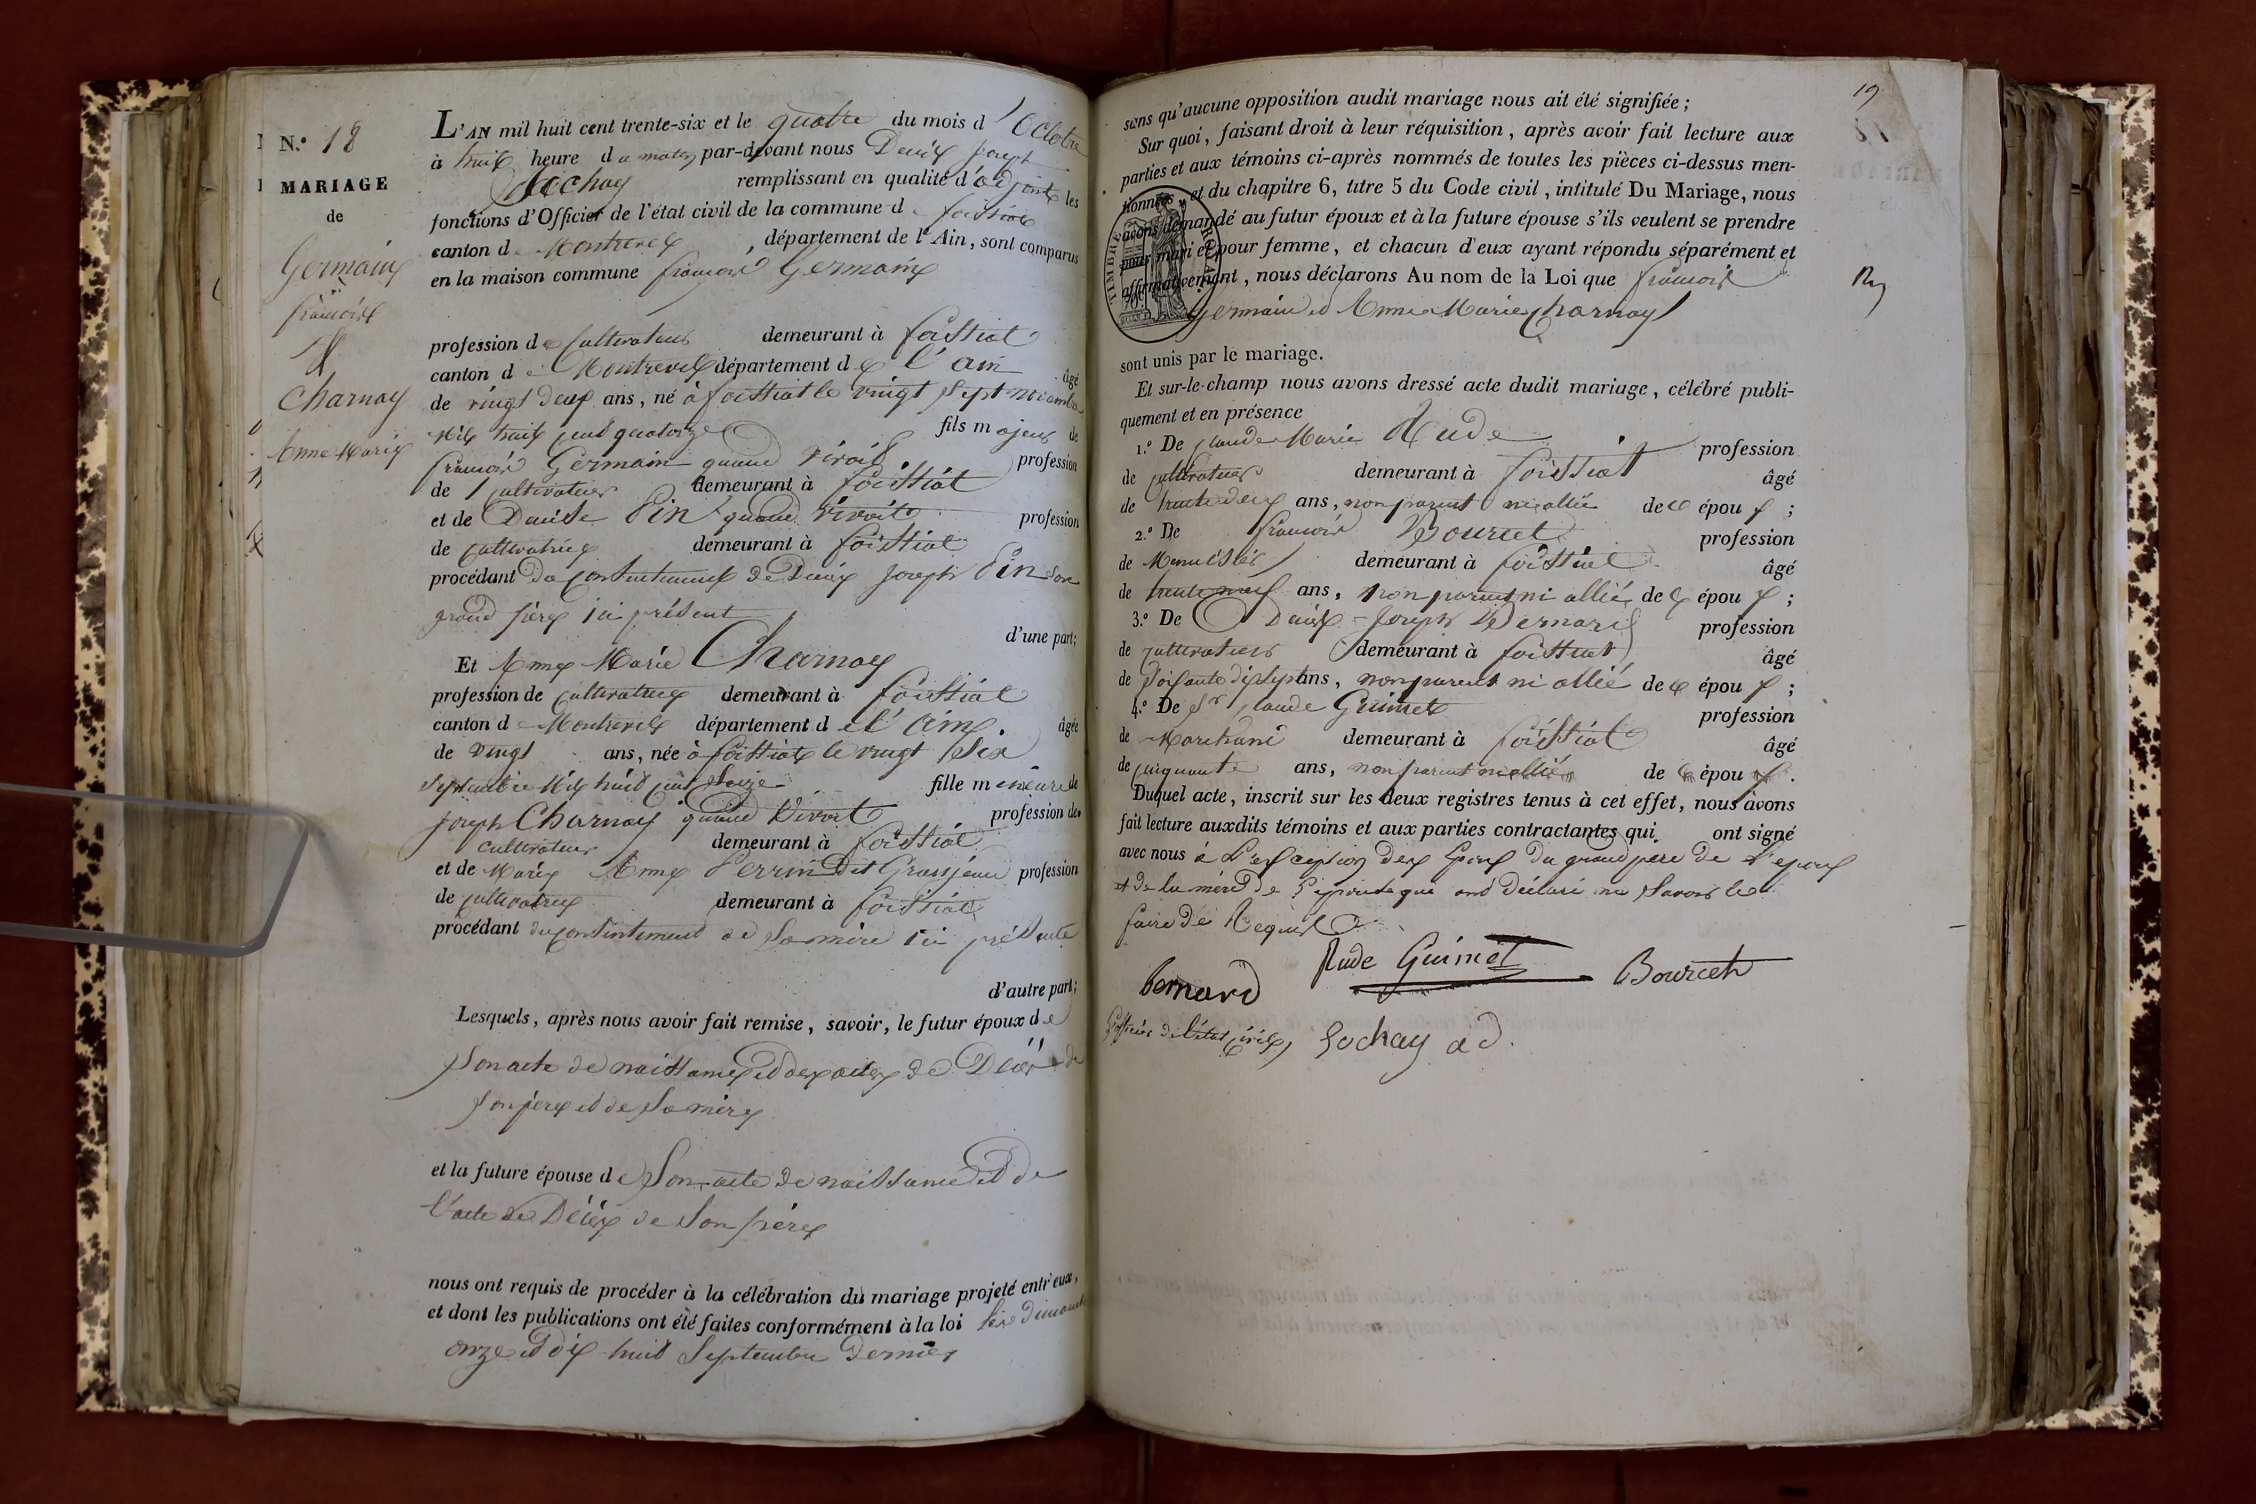 N.° 18
MARIAGE
de
Germain
françois
et
Charnay
Anne Marie
L'AN mil huit cent trente-six et le quatre du mois d'octobre
à huit heure du matin par-devant nous Denis Joseph
Sochay remplissant en qualité d'adjoint les
fonctions d'Officier de l'état civil de la commune de foissiat
canton de Montrevel, département de l'Ain, sont comparus
en la maison commune françois Germain
profession de Cultivateur demeurant à foissiat
canton de Montrevel département de l'ain âgé
de vingt deux ans, né à foissiat le vingt sept novembre
Mil huit cent quatorze fils majeur de
françois Germain quand vivait profession
de Cultivateur demeurant à foissiat
et de Denise Pin quand vivait profession
de cultivatrice demeurant à foissiat
procédant du consentement de Denis Joseph Pin son
grand père ici présent
d'une part;
Et Anne Marie Charnay
profession de cultivatrice demeurant à foissiat
canton de Montrevel département de l'ain âgée
de vingt ans, née à foissiat le vingt six
septembre Mil huit cent seize fille mineure de
Joseph Charnay quand vivait profession de
cultivateur demeurant à foissiat
et de Marie Anne Perrin dit Grosjean profession
de cultivatrice demeurant à foissiat
procédant du consentement de sa mère ici présente
d'autre part;
Lesquels, après nous avoir fait remise, savoir, le futur époux de
son acte de naissance et des actes de Décès de
son père et de sa mère
et la future épouse de son acte de naissance et de
l'acte de Décès de son père
nous ont requis de procéder à la célébration du mariage projeté entr'eux,
et dont les publications ont été faites conformément à la loi les dimanche
onze et dix huit septembre dernier
19
sans qu'aucune opposition audit mariage nous ait été signifiée;
Sur quoi, faisant droit à leur réquisition, après avoir fait lecture aux
parties et aux témoins ci-après nommés de toutes les pièces ci-dessus men-
tionnées et du chapitre 6, titre 5 du Code civil, intitulé Du Mariage, nous
avons demandé au futur époux et à la future épouse s'ils veulent se prendre
pour mari et pour femme, et chacun d'eux ayant répondu séparément et
affirmativement, nous déclarons Au nom de la Loi que françois
Germain et Anne Marie Charnay
TIMBRE ROYAL
sont unis par le mariage.
Et sur-le-champ nous avons dressé acte dudit mariage, célébré publi-
quement et en présence
1.° De Claude Marie Rude profession
de cultivateur demeurant à foissiat âgé
de trente deux ans, non parent ni allié de époux;
2.° De françois Bourcet profession
de Menuisier demeurant à foissiat âgé
de trente neuf ans, non parent ni allié de époux;
3.° De Denis Joseph Bernard profession
de cultivateur demeurant à foissiat âgé
de soixante dix sept ans, non parent ni allié de époux;
4.° De Sr Claude Guimet profession
de Marchand demeurant à foissiat âgé
de cinquante ans, non parent ni allié de époux.
Duquel acte, inscrit sur les deux registres tenus à cet effet, nous avons
fait lecture auxdits témoins et aux parties contractantes qui ont signé
avec nous à l'exception des époux du grand père de l'époux
et de la mère de l'épouse qui ont déclaré ne savoir le
faire de Requis
Bernard Rude Guimet Bourcet
L'officier de l'état civil, Sochay ad.